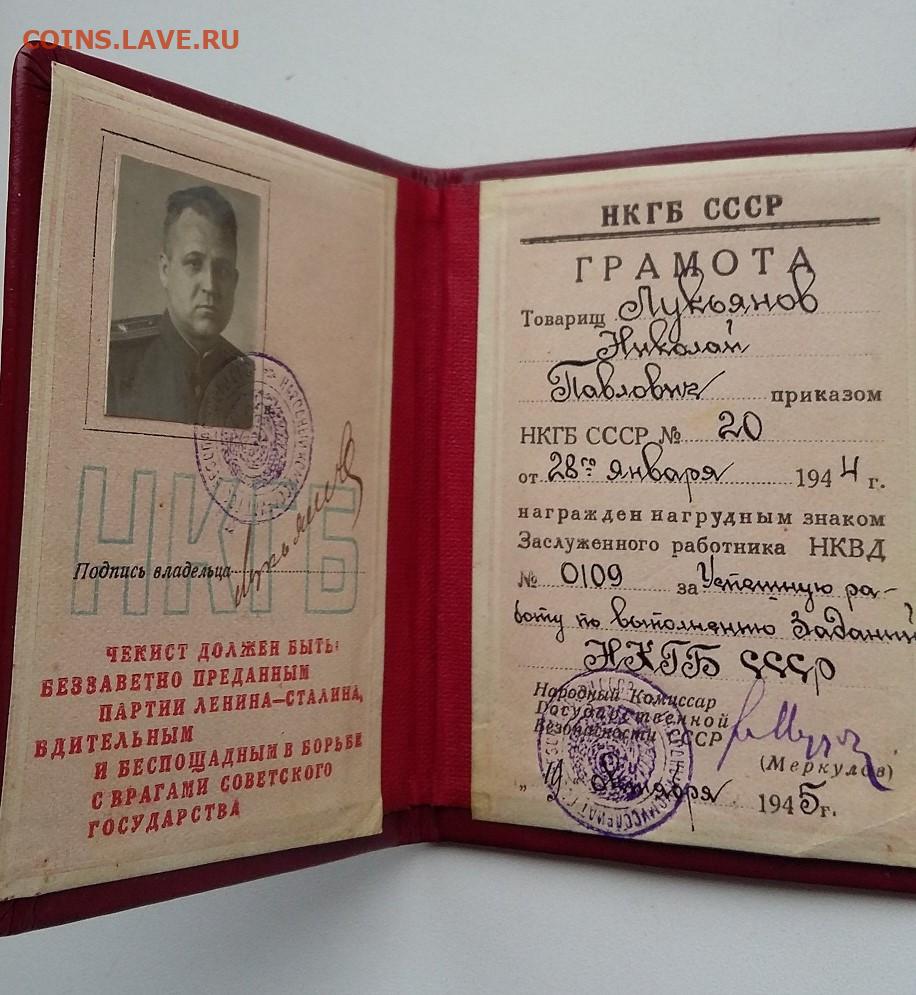 COINS.LAVE.RU
НКГБ
Подпись владельца
ЧЕКИСТ ДОЛЖЕН БЫТЬ:
БЕЗЗАВЕТНО ПРЕДАННЫМ
ПАРТИИ ЛЕНИНА—СТАЛИНА,
БДИТЕЛЬНЫМ
И БЕСПОЩАДНЫМ В БОРЬБЕ
С ВРАГАМИ СОВЕТСКОГО
ГОСУДАРСТВА
НКГБ СССР
ГРАМОТА
Товарищ Лукьянов
Николай
Павлович приказом
НКГБ СССР № 20
от 28го января 1944 г.
награжден нагрудным знаком
Заслуженного работника НКВД
№ 0109 за Успешную ра-
боту по выполнению Заданий
НКГБ СССР
Народный Комиссар
Государственной
Безопасности СССР
(Меркулов)
октября 1945 г.